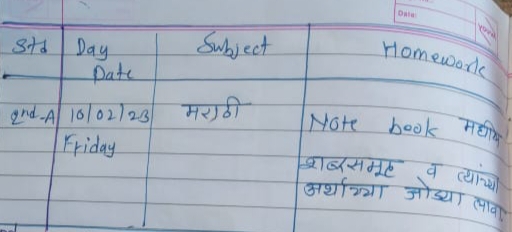 Date:
Std Day Subject Homework
Date
2nd-A 10/02/23 मराठी Note book मधील
Friday
शब्दसमूह व त्यांच्या
अर्थाच्या जोड्या लावा